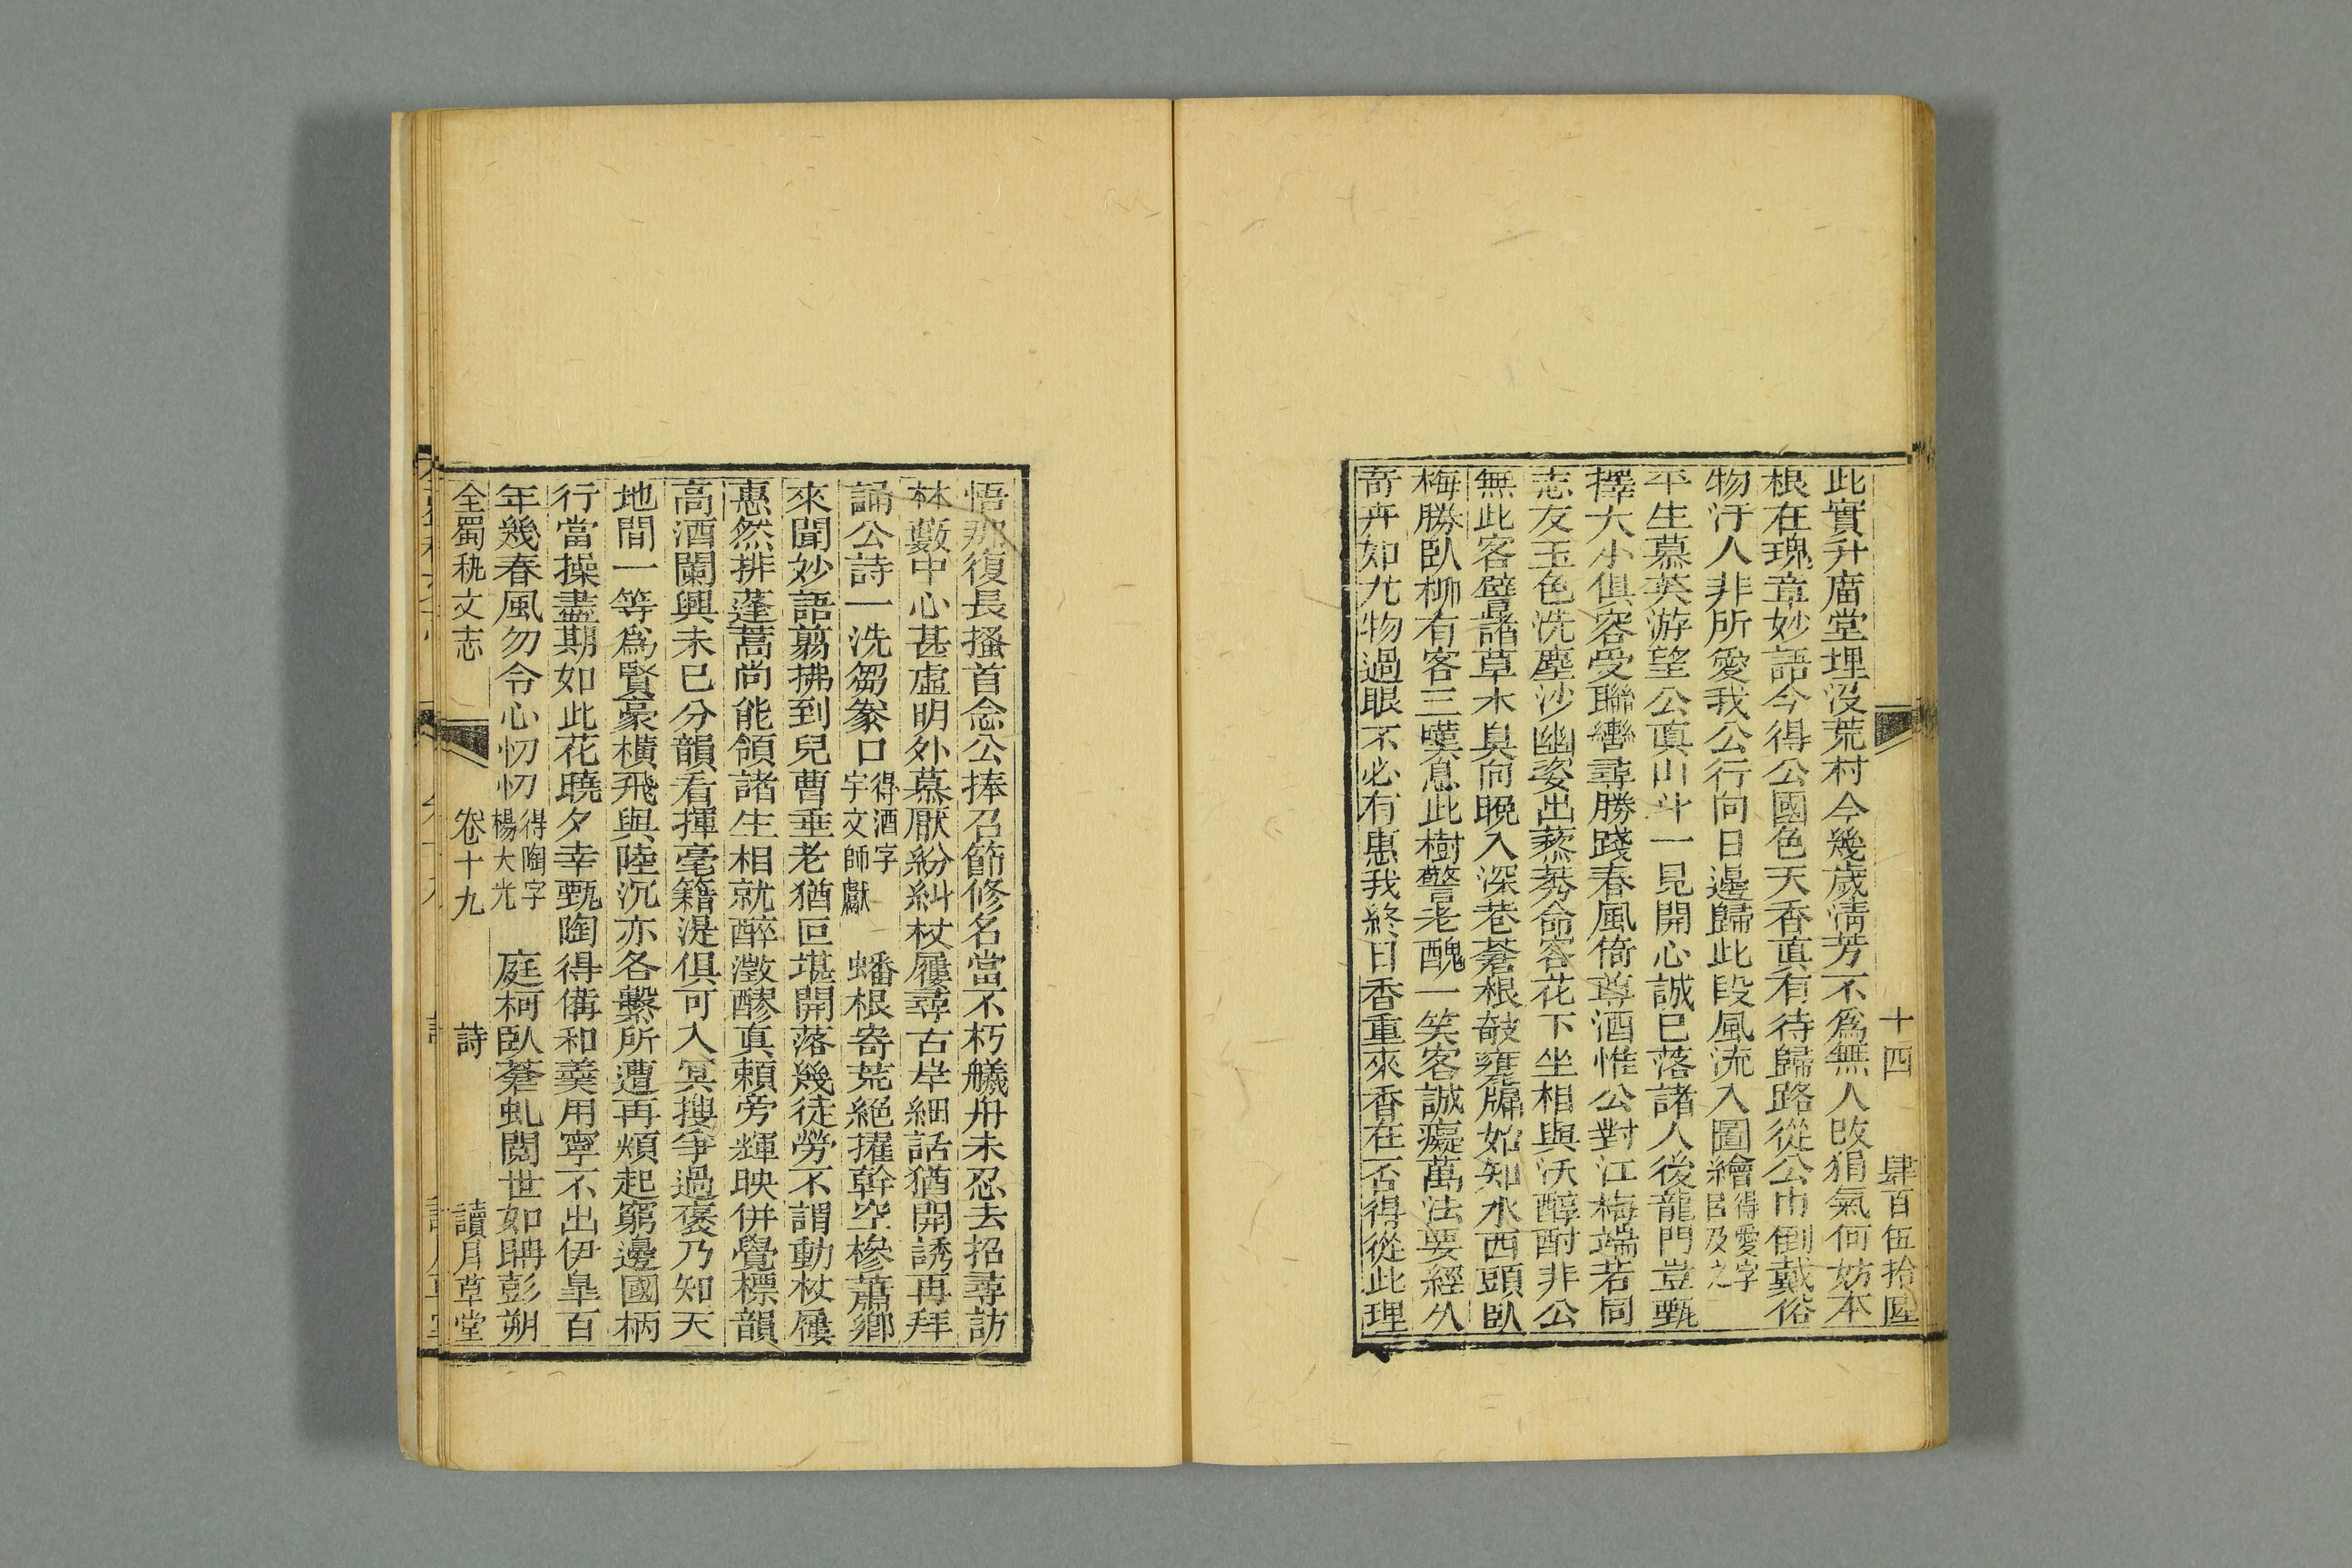 十四 肆百伍拾
此實升廟堂埋没荒村今幾歲清芳不爲無人改狷氣何妨本
根在瑰章妙語今得公國色天香真有待歸路從公巾倒戴俗
物汙人非所愛我公行向日邊歸此段風流入圖繪得愛字呂及之
平生慕英游望公真山斗一見開心誠已落諸人後龍門豈甄
擇大小俱容受聯轡尋勝踐春風倚尊酒惟公對江梅端若同
志友玉色洗塵沙幽姿出蒸莠命客花下坐相與沃醇酎非公
無此客譬諸草木臭向晚入深巷蒼根敧甕牖始知水西頭臥
梅勝臥柳有客三嘆息此樹警老醜一笑客誠癡萬法要經久
奇卉如尤物過眼不必有惠我終日香重來香在否得從此理
悟那復長搔首念公捧召節修名當不朽艤舟未忍去招尋訪
林藪中心甚虛明外慕厭紛糾杖屨尋古岸細話猶開誘再拜
誦公詩一洗芻豢口得酒字宇文師獻 蟠根寄荒絕擢幹空槮蕭鄉
來聞妙語翦拂到兒曹垂老猶叵堪開落幾徒勞不謂動杖屨
惠然排蓬蒿尚能領諸生相就醉澂醪真賴旁輝映併覺標韻
高酒闌興未已分韻看揮毫籍湜俱可入冥搜爭過褒乃知天
地間一等爲賢豪橫飛與陸沉亦各繫所遭再煩起窮邊國柄
行當操盡期如此花曉夕幸甄陶得備和羹用寧不出伊臯百
年幾春風勿令心忉忉得陶字楊大光 庭柯臥蒼虬閱世如聃彭朔
全蜀秇文志 卷十九 詩 讀月草堂